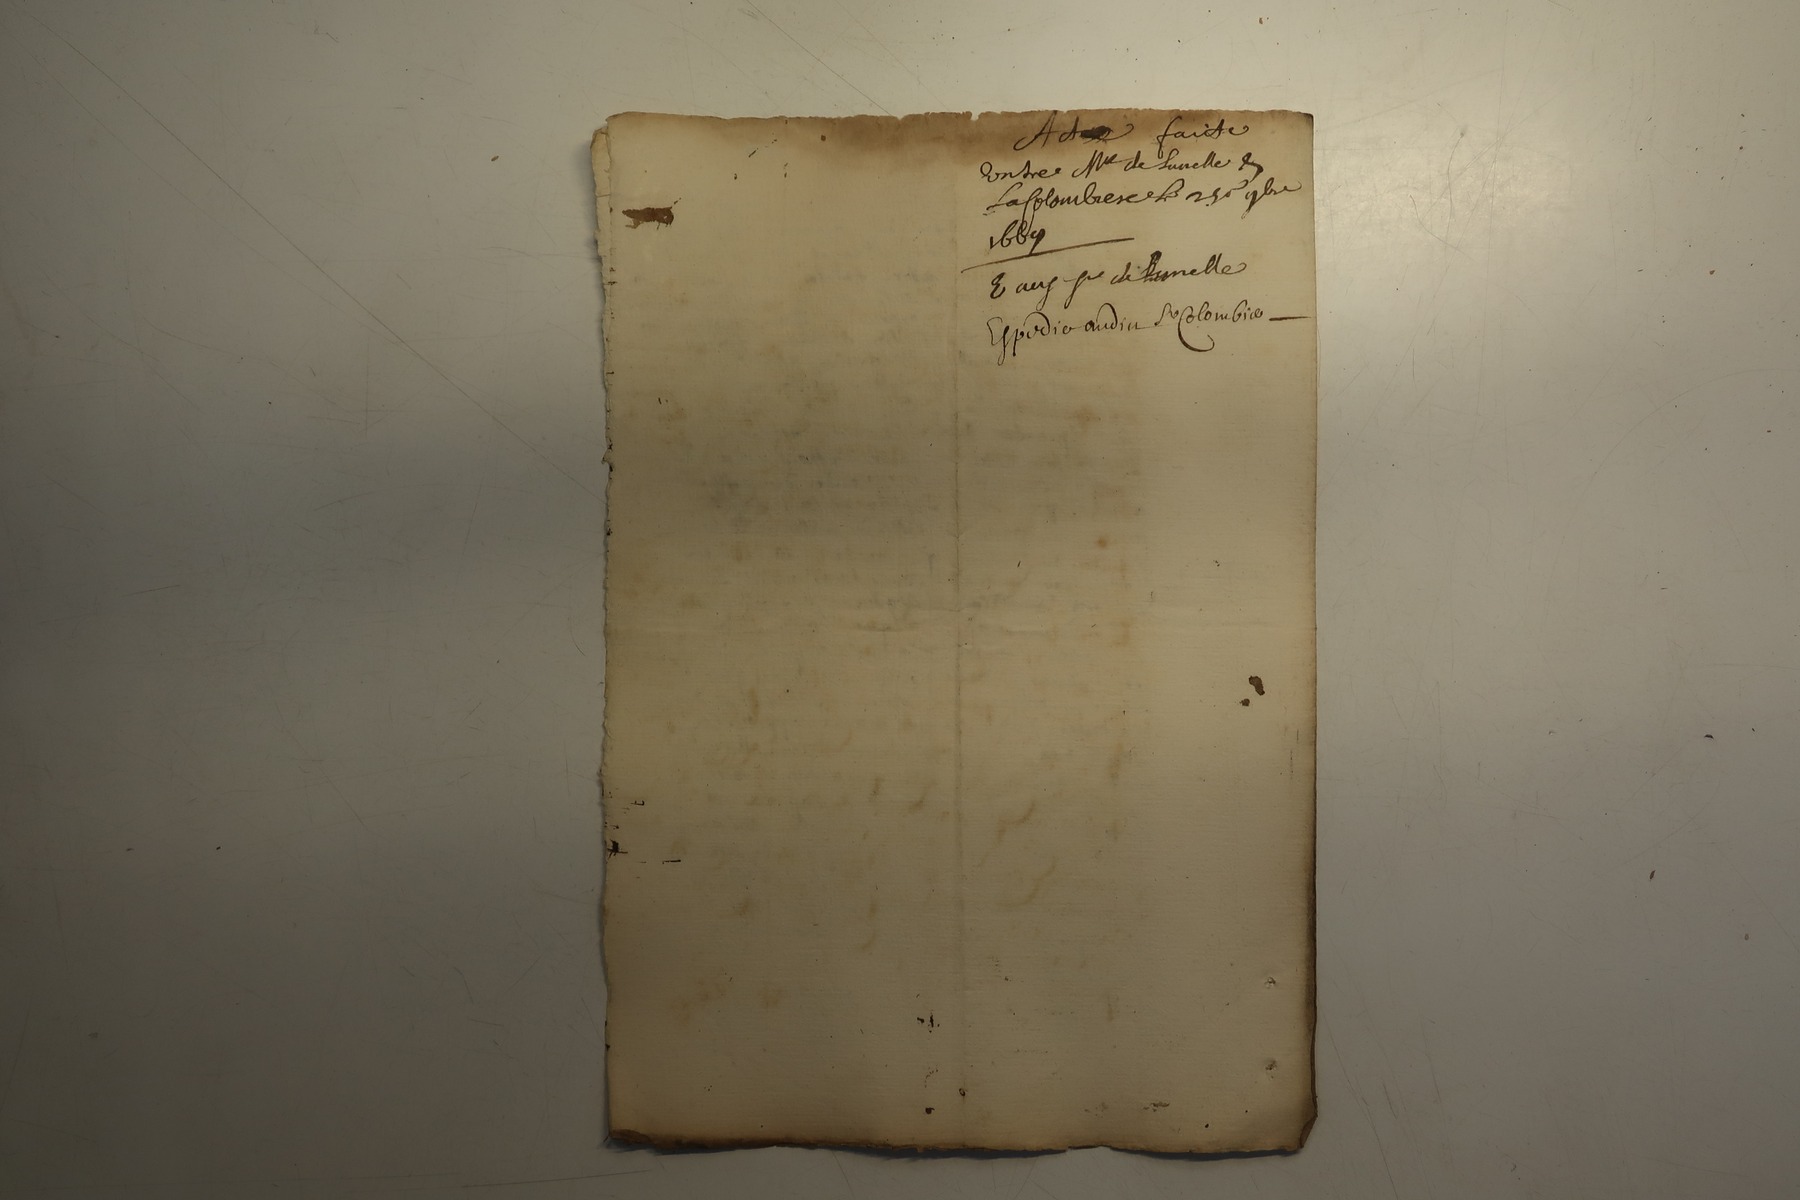 Acte faicte
Entre Mre de Lunelle &
La Colombiere le 25e 9bre
1667
E aug sr de Lunelle
Espedie audin Sr Colombie